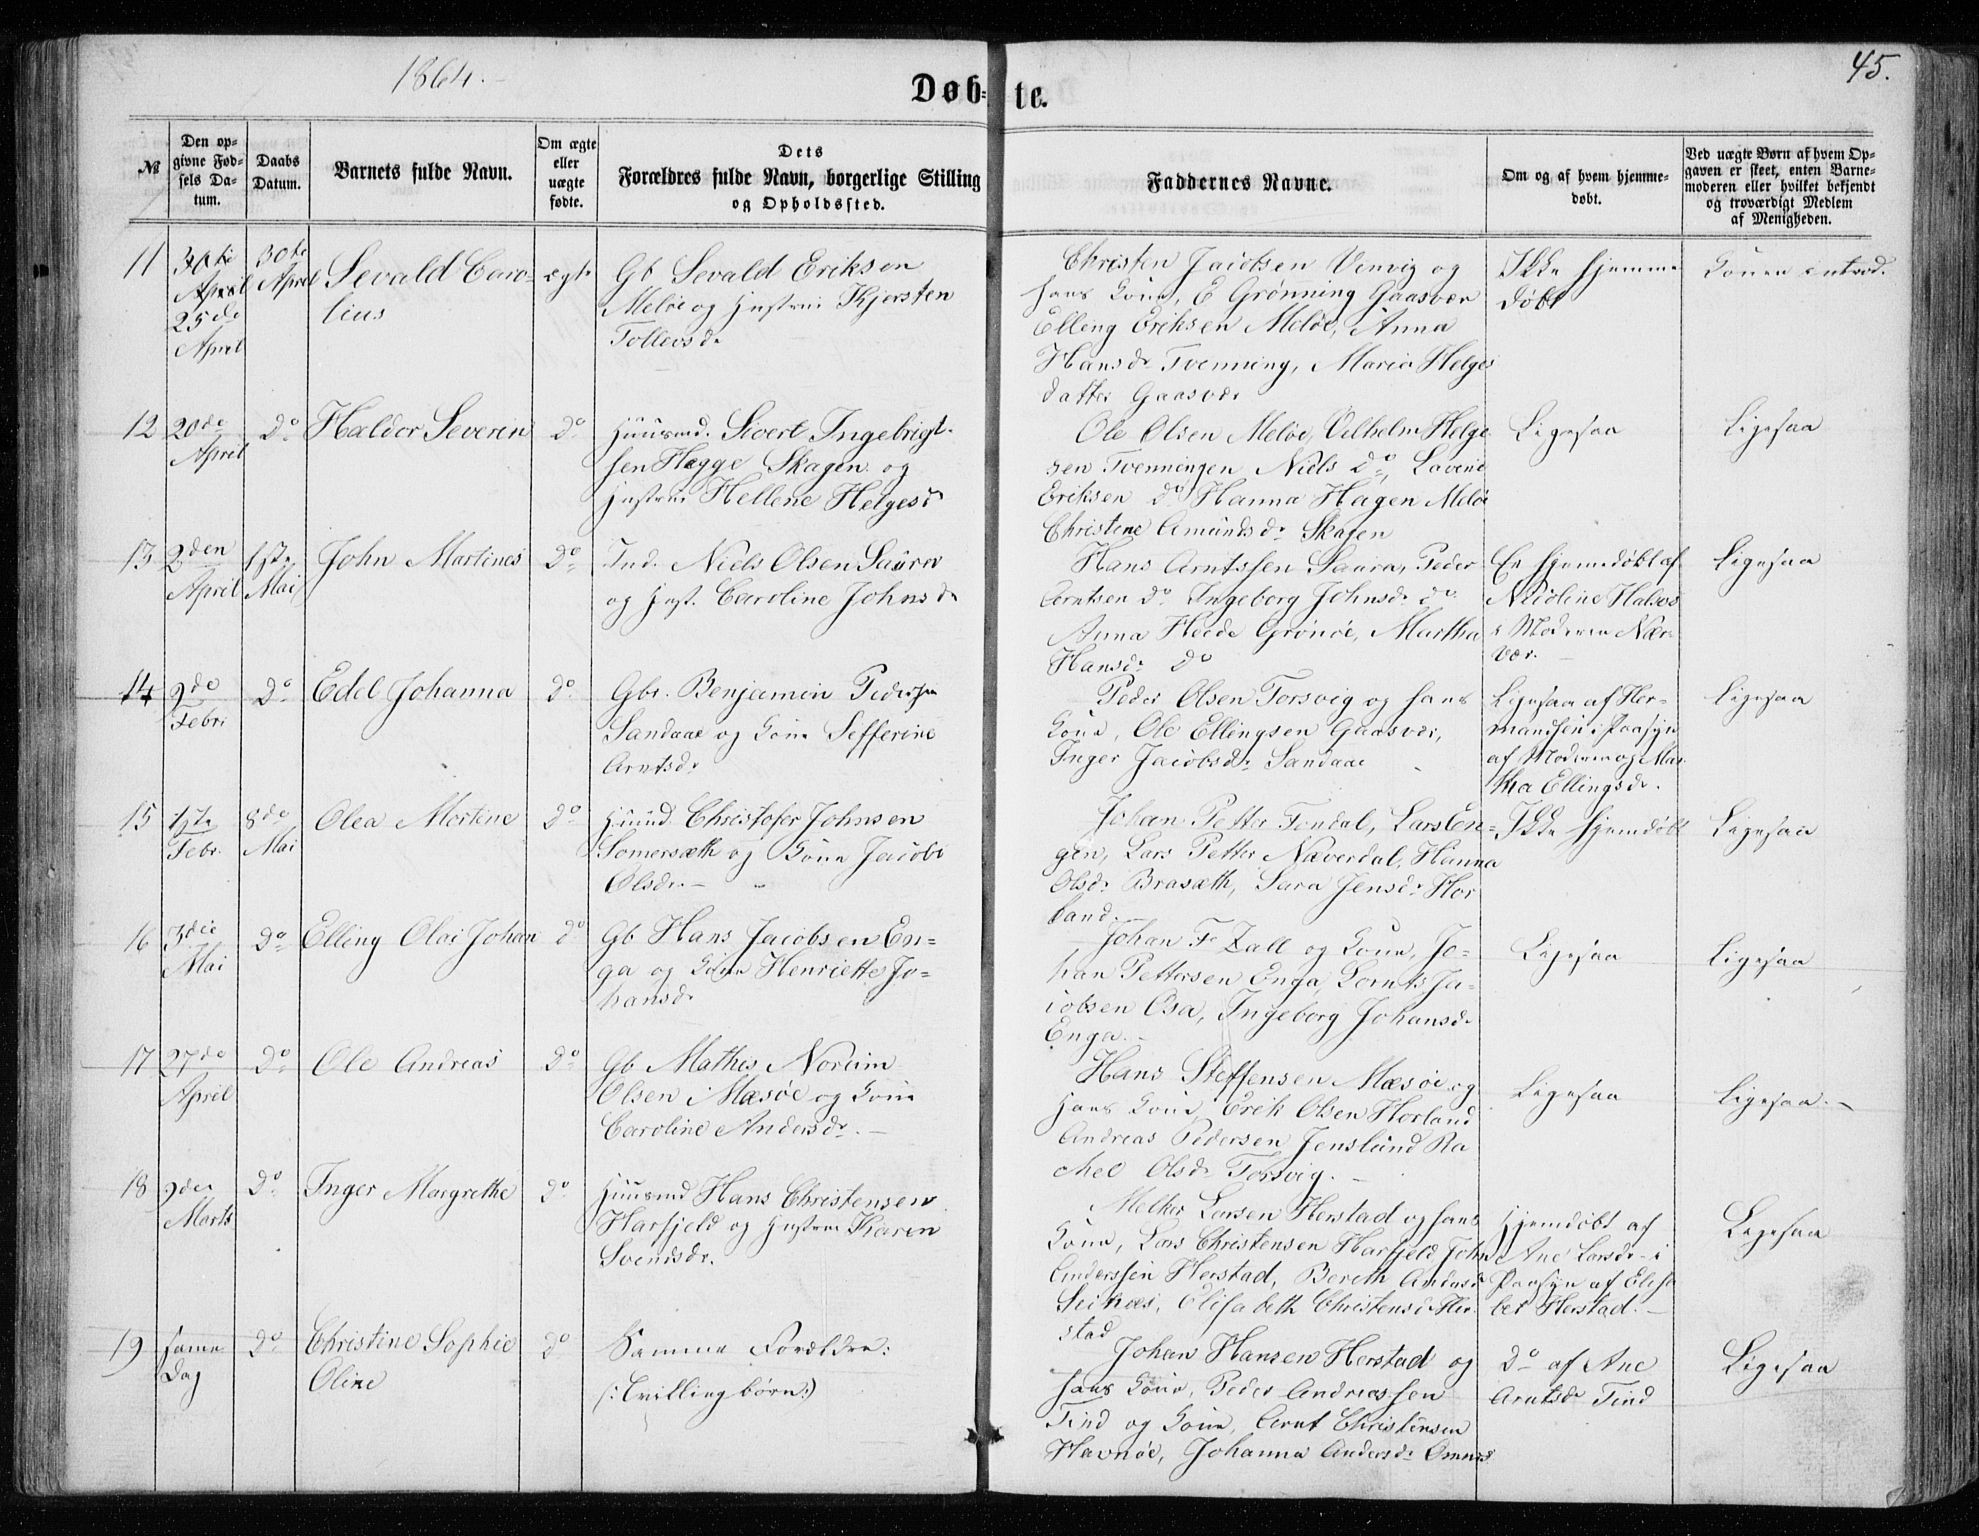 1864.
45.
Døb-te.
№
Den op-
givne Fød-
sels Da-
tum.
Daabs
Datum.
Barnets fulde Navn.
Om ægte
eller
uægte
fødte.
Dets
Forældres fulde Navn, borgerlige Stilling
og Opholdssted.
Faddernes Navne.
Om og af hvem hjemme-
døbt.
Ved uægte Børn af hvem Op-
gaven er skeet, enten Barne-
moderen eller hvilket bekjendt
og troværdigt Medlem
af Menigheden.
11
30te
April
25de
April
30te
April
Sevald Caro-
lius
ægte
Gb Sevald Eriksen
Meløe og Hustrue Kjersten
Tollevsdr
Christen Jacobsen Venvig og
hans Kone, E Grønning Gaasvær
Elling Eriksen Meløe, Anna
Hansdr Tvenning, Maria Helges
datter Gaasvær
Ikke hjemme
døbt
Konen introd.
12
20de
April
Do
Haldor Severin
Do
Huusmd. Sivert Ingebrigt-
sen Hegge Skagen og
Hustrue Hellene Helgesdr
Ole Olsen Meløe, Vilhelm Helge
sen Tvenningen Niels Do, Lavine
Eriksen Do Hanna Hagen Meløe
Christine Amundsdr Skagen
Ligesaa
Ligesaa
13
2den
April
1ste
Mai
John Martines
Do
Ind. Niels Olsen Saura
og Hust. Caroline Johnsdr
Hans Arntssen Saura, Peder
Arntsen Do Ingeborg Johnsdr Do
Anna Heede Grønøe, Martha
Hansdr Do
Er hjemdøbt af
Nicoline Halsos
i Moderen Nær-
vær.
Ligesaa
14
9de
Febr
Do
Edel Johanna
Do
Gbr. Benjamin Pedersen
Sandaae og Kone Sefferine
Arntsdr
Peder Olsen Torsvig og hans
Kone, Ole Ellingsen Gaasvær,
Inger Jacobsdr Sandaae
Ligesaa af Her-
mandsen i Paasyn
af Moderen og Mar-
tha Ellingsdr.
Ligesaa
15
1ste
Febr.
8de
Mai
Olea Martine
Do
Huusmd Christofer Johnsen
Somersæth og Kone Jacobi
Olsdr. –
Johan Petter Fondal, Lars En-
gen, Lars Petter Næverdal, Hanna
Olsdr Brasæth, Sara Jensdr Hor
land.
Ikke hjemdøbt
Ligesaa
16
3die
Mai
Do
Elling Olai Johan
Do
Gb Hans Jacobsen En-
ga og Kone Henriette Jo-
hansdr
Johan F Zall og Kone, Jo-
han Pettersen Enga, Lornts Ja-
cobsen Osa, Ingeborg Johansdr
Enga. –
Ligesaa
Ligesaa
17
27de
April
Do
Ole Andreas
Do
Gb Mathis Norum
Olsen Mæsøe og Kone
Caroline Andersdr. –
Hans Steffensen Mæsøe og
hans Kone Erik Olsen Horland
Andreas Pedersen Jenslund Ra
chel Olsdr Torsvig. –
Ligesaa
Ligesaa. –
18
9de
Marts
Do
Inger Margrethe
Do
Huusmd Hans Christensen
Harfjeld og Hustrue Karen
Svendsdr.
Melker Larsen Herstad og hans
Kone, Lars Christensen Harfjeld John
Anderssen Herstad, Bereth Andersdr
Seines, Elisabeth Christensdr Her-
stad
Hjemdøbt af
Ane Larsdr – i
Paasyn af Elisa
bet Herstad. –
Ligesaa
19
samme
Dag
Do
Christine Sophie
Oline
Do
Samme Forældre:
(: Tvillingbørn:)
Johan Hansen Herstad og
hans Kone, Peder Andreassen
Tind og Kone, Arnt Christensen
Havnøe, Johanna Andersdr Omnes
Do af Ane
Arntsdr Tind
Ligesaa